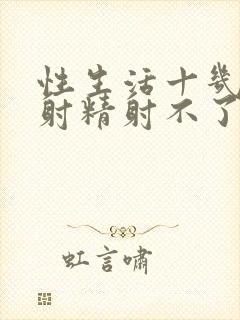 性生活十几
射精射不了
虹言啸